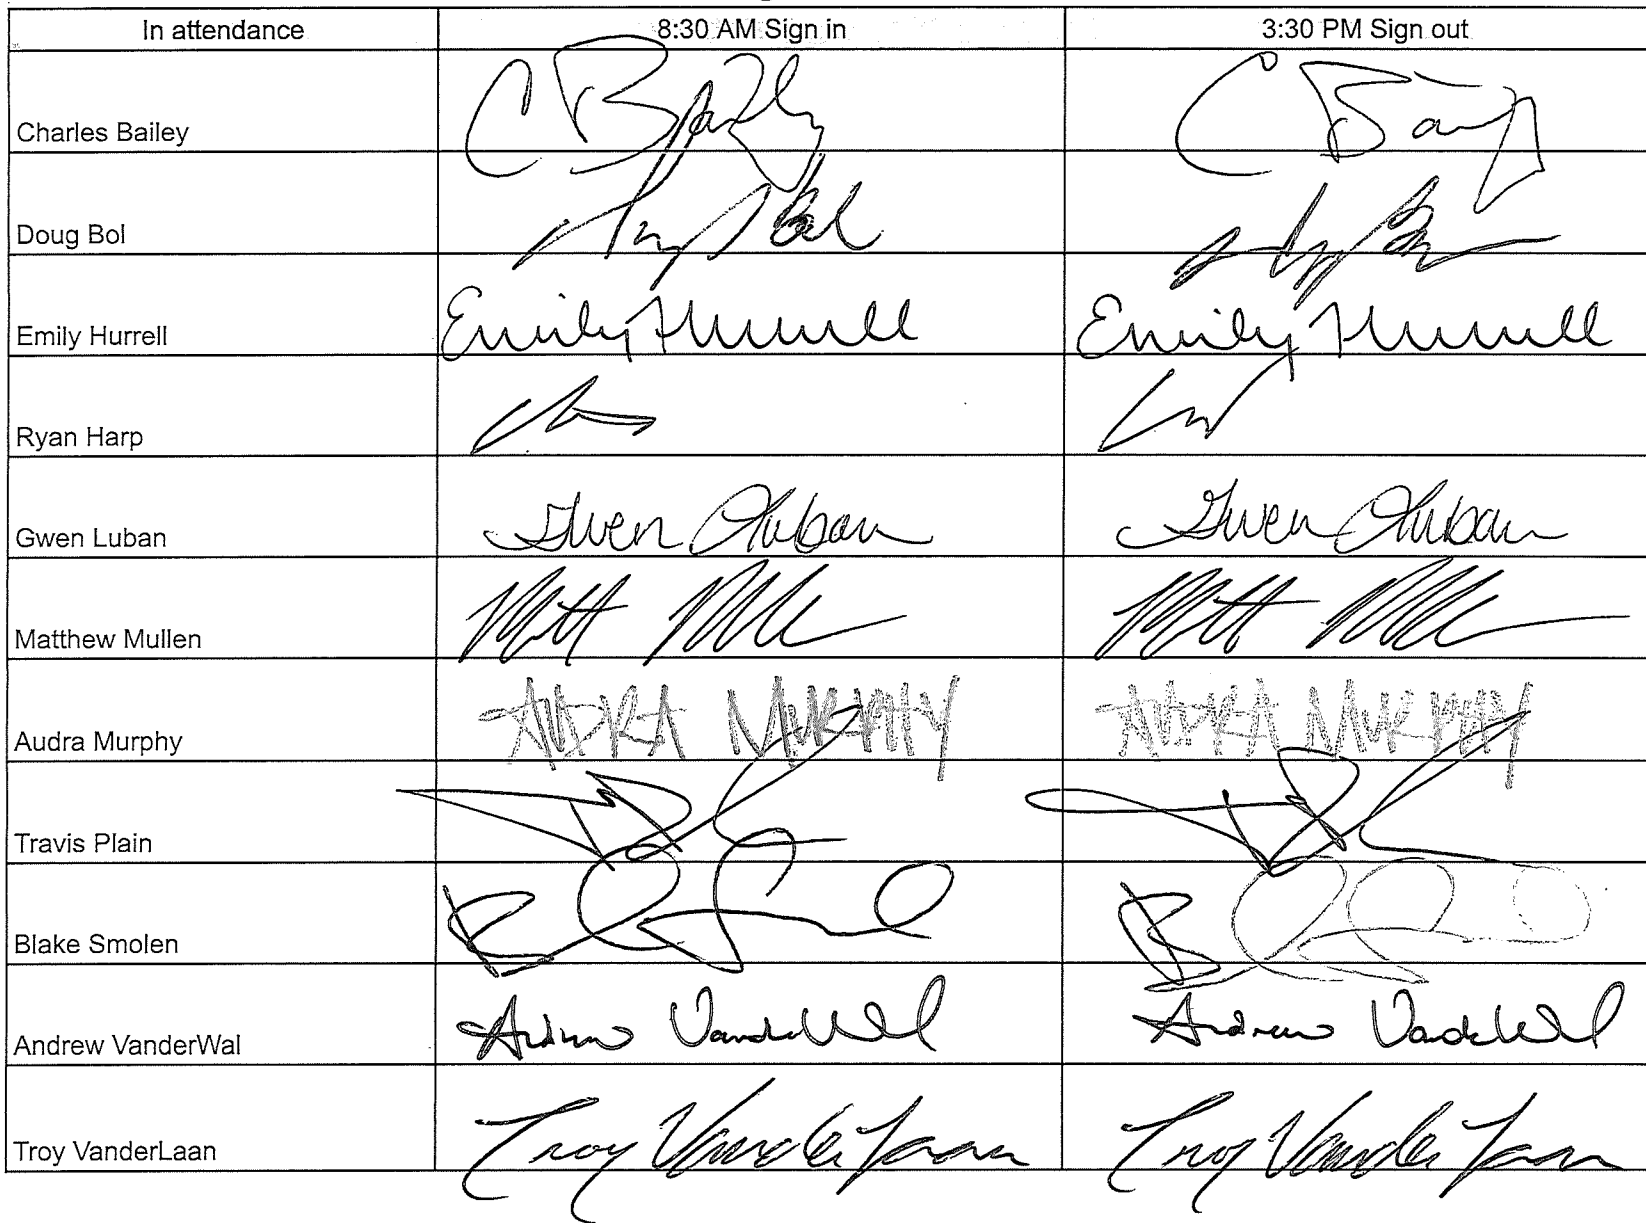 In attendance 8:30 AM Sign in 3:30 PM Sign out
Charles Bailey C Bailey C Bailey
Doug Bol Doug Bol
Emily Hurrell Emily Hurrell Emily Hurrell
Ryan Harp
Gwen Luban Gwen Luban Gwen Luban
Matthew Mullen Matt Matt
Audra Murphy AUDRA MURPHY AUDRA MURPHY
Travis Plain
Blake Smolen
Andrew VanderWal Andrew VanderWal Andrew VanderWal
Troy VanderLaan Troy VanderLaan Troy VanderLaan